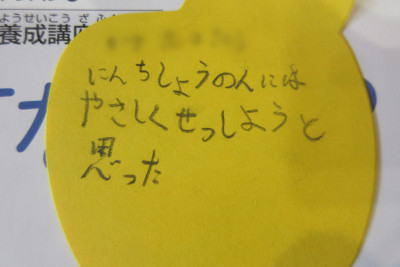 ようせいこうざ
養成講座
にんちしょうの人には
やさしくせっしようと
思った